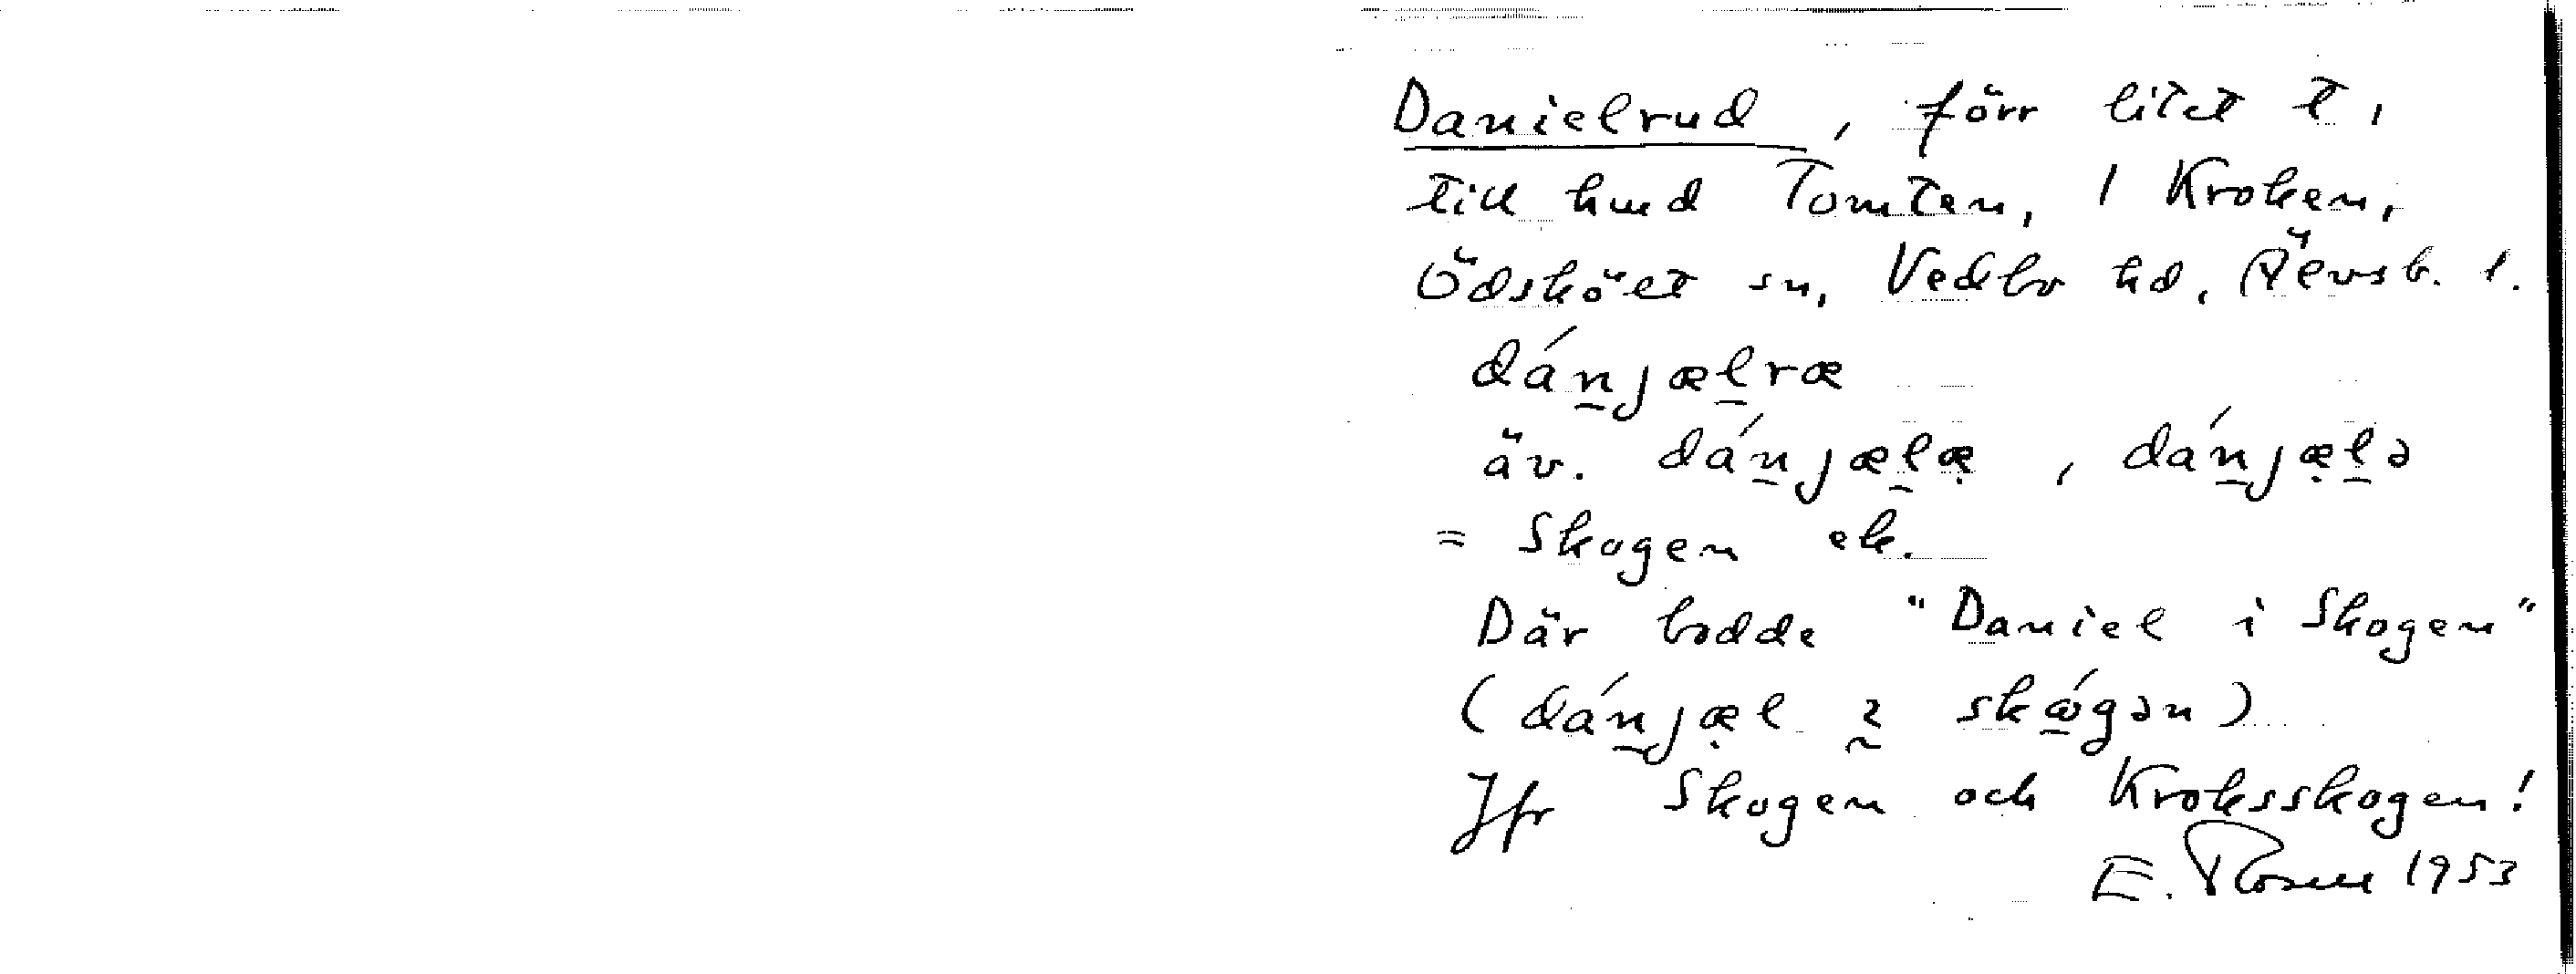 Danielrud, förr litet t.
till hmd Tomten, 1 Kroken,
Ödsköet sn, Vedbo hd, Älvsb. l.
dánjælræ
äv. dánjælæ, dánjælə
= Skogen ek.
Där bodde "Daniel i Skogen"
(dánjæl ɩ skǿgən)
Jfr Skogen och Kroksskogen!
E. Rosell 1953